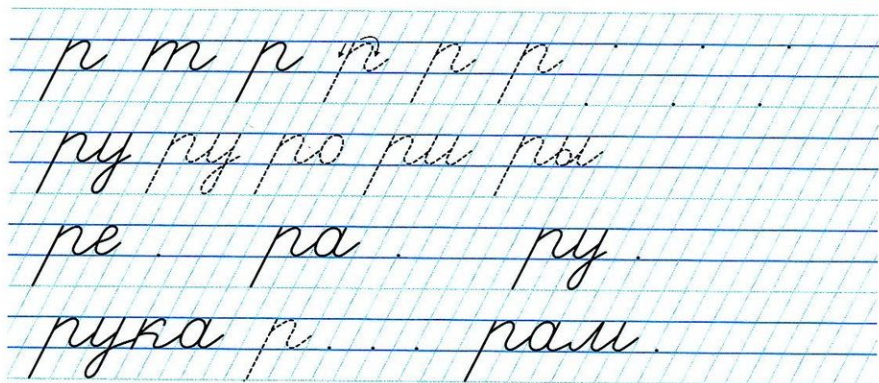 р т р р р р
ру ру ро ри ры
ре ра ру
рука р рам